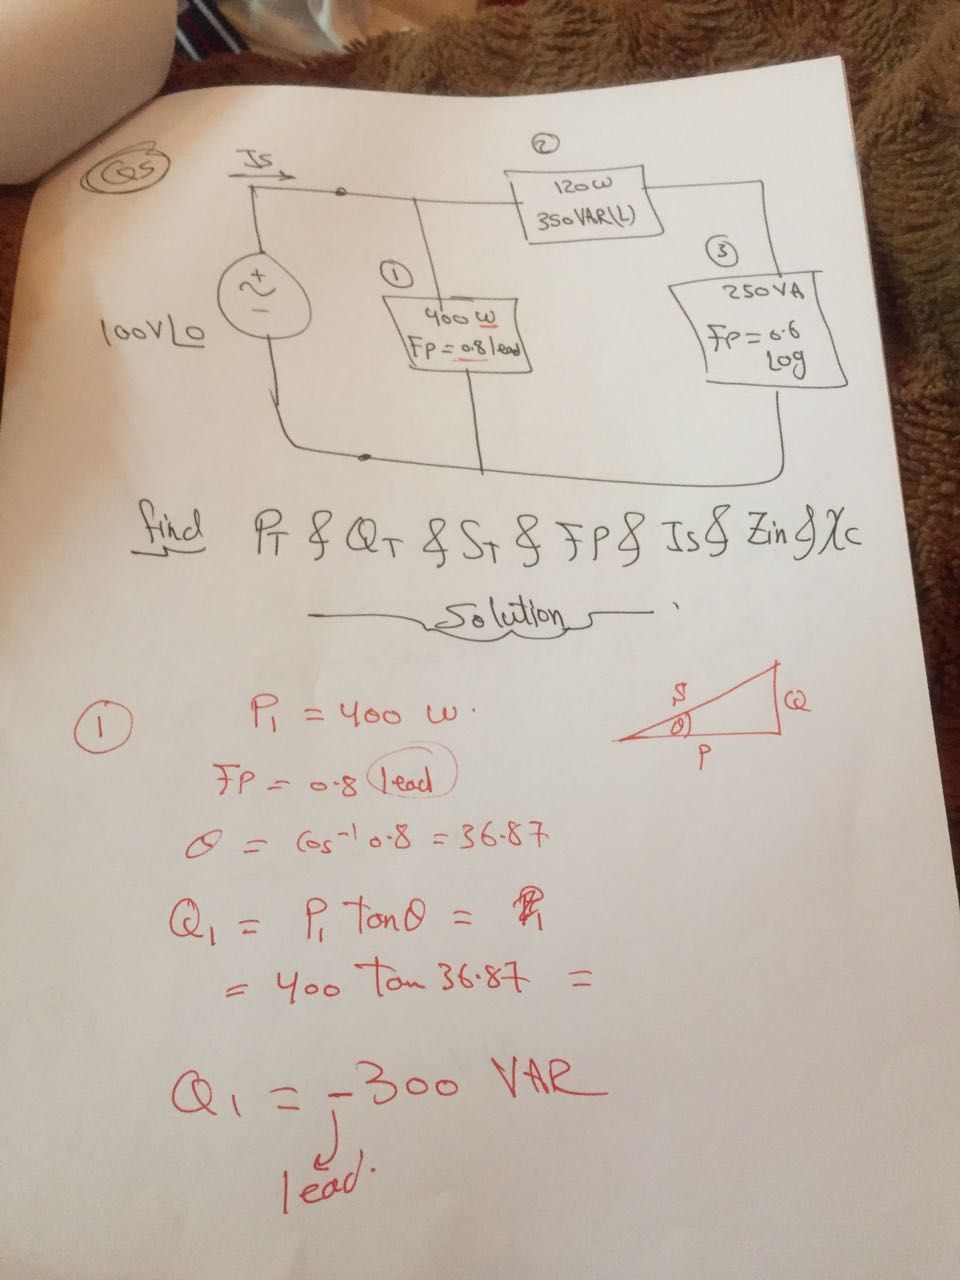 Q5
Is
②
120 W
350 VAR(L)
③
250 VA
FP = 0.6
Log
①
400 w
FP = 0.8 lead
+
−
100V∠0
find PT & QT & ST & FP & Is & Zin & Xc
Solution
①
P1 = 400 w.
S
θ
Q
P
FP = 0.8 lead
θ = Cos⁻¹ 0.8 = 36.87
Q1 = P1 tanθ =
= 400 tan 36.87 =
Q1 = -300 VAR
lead.